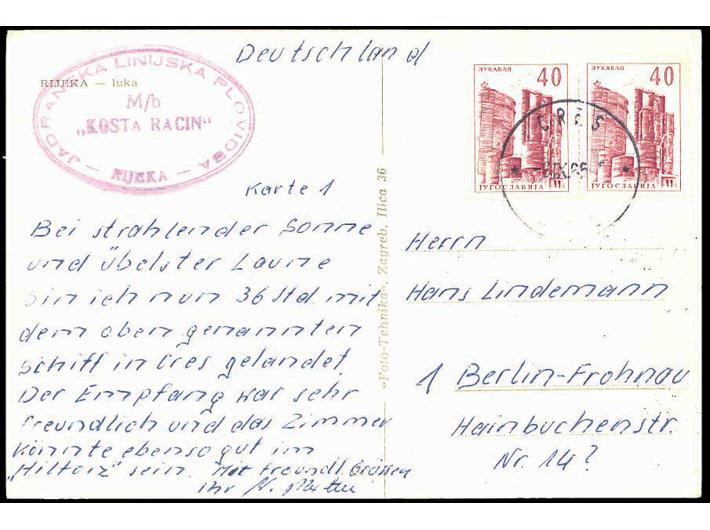 Deutschland
RIJEKA — luka
JADRANSKA LINIJSKA PLOVIDBA
M/b
„KOSTA RACIN“
— RIJEKA —
ЛУКАВАЦ 40
ЈУГОСЛАВИЈА
ЛУКАВАЦ 40
ЈУГОСЛАВИЈА
CRES
Karte 1
Bei strahlender Sonne
und übelster Laune
bin ich nun 36 Std. mit
dem oben genannten
Schiff in Cres gelandet.
Der Empfang war sehr
freundlich und das Zimmer
könnte ebenso gut im
„Hilton“ sein. Mit freundl. Grüssen
Ihr N.
„Foto-Tehnika“, Zagreb, Ilica 36
Herrn
Hans Lindemann
1 Berlin-Frohnau
Hainbuchenstr.
Nr. 14?